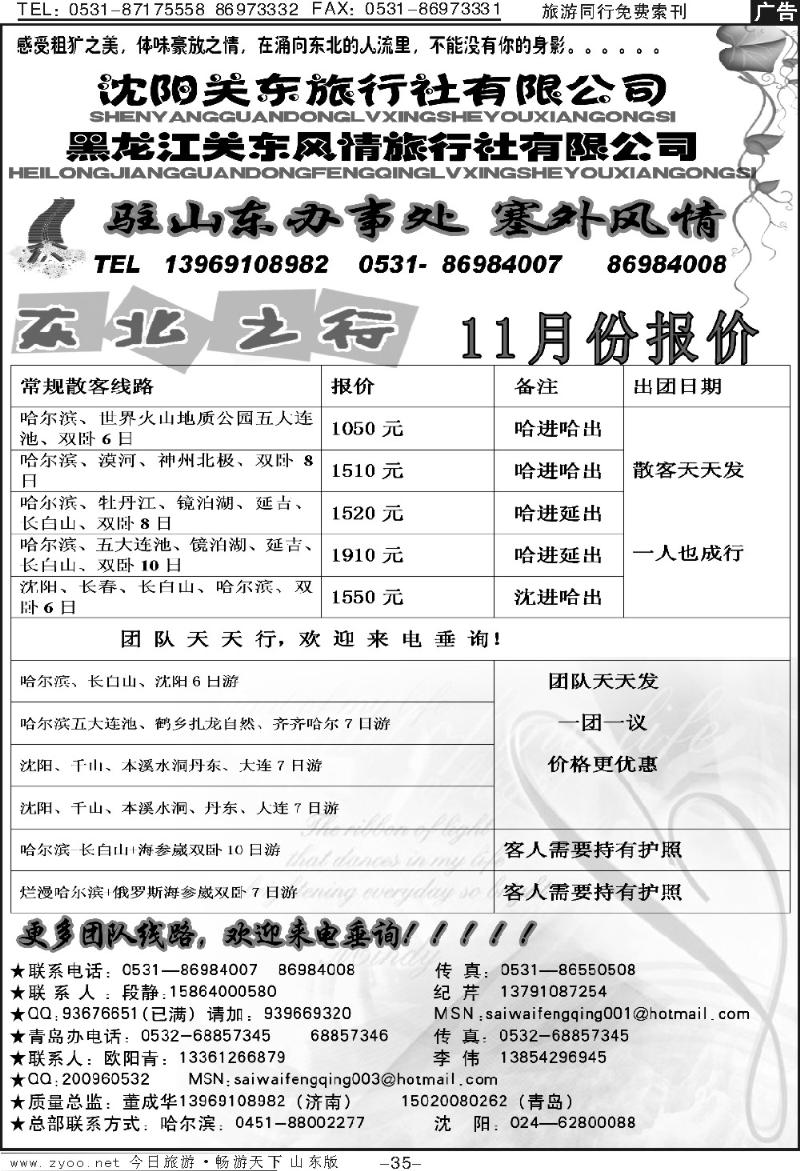 TEL: 0531-87175558 86973332 FAX: 0531-86973331 旅游同行免费索刊 广告
感受粗犷之美，体味豪放之情，在涌向东北的人流里，不能没有你的身影。。。。。。
沈阳关东旅行社有限公司
SHENYANGGUANDONGLVXINGSHEYOUXIANGONGSI
黑龙江关东风情旅行社有限公司
HEILONGJIANGGUANDONGFENGQINGLVXINGSHEYOUXIANGONGSI
驻山东办事处 塞外风情
TEL 13969108982 0531- 86984007 86984008
东北之行 11月份报价
常规散客线路 报价 备注 出团日期
哈尔滨、世界火山地质公园五大连
池、双卧 6 日 1050 元 哈进哈出
哈尔滨、漠河、神州北极、双卧 8
日 1510 元 哈进哈出 散客天天发
哈尔滨、牡丹江、镜泊湖、延吉、
长白山、双卧 8 日 1520 元 哈进延出
哈尔滨、五大连池、镜泊湖、延吉、
长白山、双卧 10 日 1910 元 哈进延出 一人也成行
沈阳、长春、长白山、哈尔滨、双
卧 6 日 1550 元 沈进哈出
团队天天行，欢迎来电垂询！
哈尔滨、长白山、沈阳 6 日游 团队天天发
哈尔滨五大连池、鹤乡扎龙自然、齐齐哈尔 7 日游 一团一议
沈阳、千山、本溪水洞丹东、大连 7 日游 价格更优惠
沈阳、千山、本溪水洞、丹东、大连 7 日游
The ribbon of light
哈尔滨-长白山+海参崴双卧 10 日游 客人需要持有护照
that dances in my life
烂漫哈尔滨+俄罗斯海参崴双卧 7 日游 客人需要持有护照
更多团队线路，欢迎来电垂询！！！！！
★联系电话：0531—86984007 86984008 传 真：0531—86550508
★联 系 人：段静：15864000580 纪 芹 13791087254
★QQ:93676651(已满) 请加：939669320 MSN:saiwaifengqing001@hotmail.com
★青岛办电话：0532-68857345 68857346 传 真：0532-68857345
★联系人：欧阳青：13361266879 李 伟 13854296945
★QQ:200960532 MSN:saiwaifengqing003@hotmail.com
★质量总监：董成华13969108982（济南） 15020080262（青岛）
★总部联系方式：哈尔滨：0451-88002277 沈 阳：024—62800088
www.zyoo.net 今日旅游·畅游天下 山东版 -35-